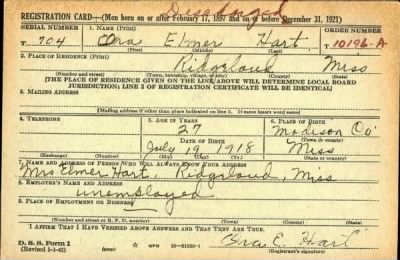 Discharged
REGISTRATION CARD—(Men born on or after February 17, 1897 and on or before December 31, 1921)
SERIAL NUMBER
1. NAME (Print)
ORDER NUMBER
T 704
Ora Elmer Hart
10196-A
(First) (Middle) (Last)
2. PLACE OF RESIDENCE (Print)
Ridgeland Miss
(Number and street) (Town, township, village, or city) (County) (State)
[THE PLACE OF RESIDENCE GIVEN ON THE LINE ABOVE WILL DETERMINE LOCAL BOARD
JURISDICTION; LINE 2 OF REGISTRATION CERTIFICATE WILL BE IDENTICAL]
3. MAILING ADDRESS
[Mailing address if other than place indicated on line 2. If same insert word same]
4. TELEPHONE
5. AGE IN YEARS
6. PLACE OF BIRTH
27
Madison Co
DATE OF BIRTH
(Town or county)
July 19 1918
Miss
(Exchange) (Number)
(Mo.) (Day) (Yr.)
(State or country)
7. NAME AND ADDRESS OF PERSON WHO WILL ALWAYS KNOW YOUR ADDRESS
Mrs Elmer Hart, Ridgeland, Miss
8. EMPLOYER'S NAME AND ADDRESS
unemployed
9. PLACE OF EMPLOYMENT OR BUSINESS
(Number and street or R. F. D. number) (Town) (County) (State)
I AFFIRM THAT I HAVE VERIFIED ABOVE ANSWERS AND THAT THEY ARE TRUE.
D. S. S. Form 1
(Revised 1-1-42)
GPO
Ora E. Hart
(Registrant's signature)